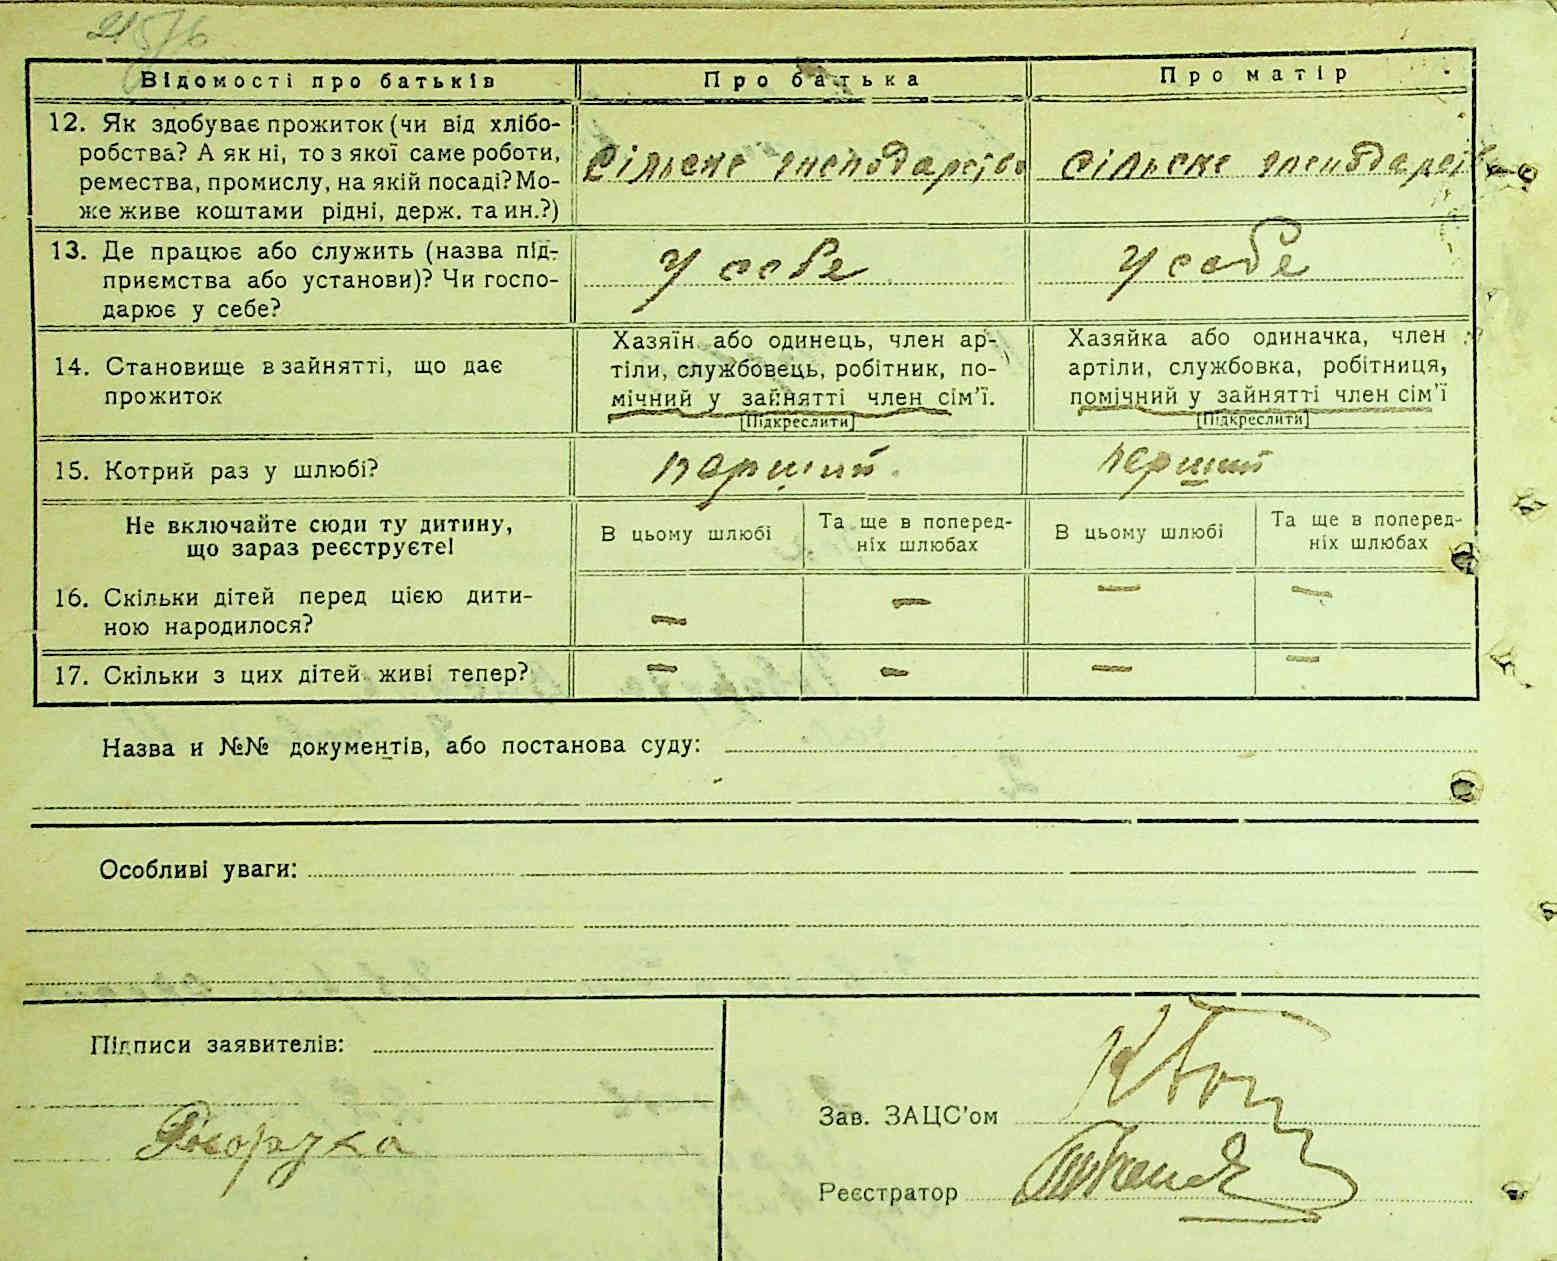 Відомості про батьків Про батька Про матір
12. Як здобуває прожиток (чи від хлібо-
робства? А як ні, то з якої саме роботи,
ремества, промислу, на якій посаді? Мо-
же живе коштами рідні, держ. та ин.?)
сільске господарство сільске
13. Де працює або служить (назва під-
приємства або установи)? Чи госпо-
дарює у себе?
у себе у себе
14. Становище в зайнятті, що дає
прожиток
Хазяїн або одинець, член ар-
тіли, службовець, робітник, по-
мічний у зайнятті член сім’ї.
[Підкреслити]
Хазяйка або одиначка, член
артіли, службовка, робітниця,
помічний у зайнятті член сім’ї
[Підкреслити]
15. Котрий раз у шлюбі? перший перший
Не включайте сюди ту дитину,
що зараз реєструєте!
В цьому шлюбі
Та ще в поперед-
ніх шлюбах
В цьому шлюбі
Та ще в поперед-
ніх шлюбах
16. Скільки дітей перед цією дити-
ною народилося?
— — — —
17. Скільки з цих дітей живі тепер? — — — —
Назва и №№ документів, або постанова суду:
Особливі уваги:
Підписи заявителів:
Зав. ЗАЦС’ом
Реєстратор